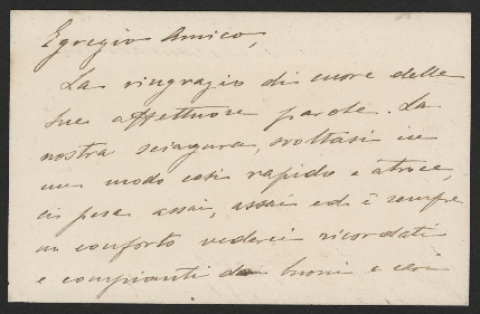 Egregio Amico,
La ringrazio di cuore delle
sue affettuose parole. La
nostra sciagura, svoltasi in
un modo così rapido e atroce,
ci pesa assai, assai ed è sempre
un conforto vederci ricordati
e compianti da buoni e cari